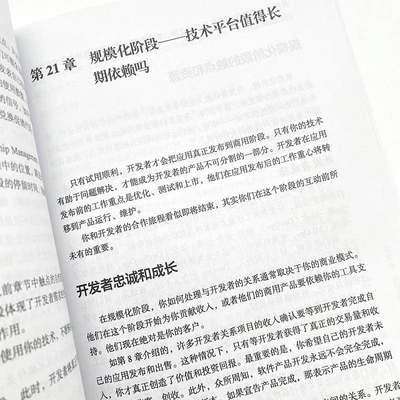 ship Management
前章节中触点的
段体现了开发者
作用。
使用你的技术，
此时，开发者将
第 21 章 规模化阶段——技术平台值得长
期依赖吗
只有试用顺利，开发者才会把应用真正发布到商用阶段。只有你的技术
有助于问题解决，才能成为开发者的产品不可分割的一部分。开发者在应用
发布前的工作重点是优化、测试和上市，他们在应用发布后的工作重心将转
移到产品运行、维护。
你和开发者的合作旅程看似即将结束，其实你们在这个阶段的互动前所
未有的重要。
开发者忠诚和成长
在规模化阶段，你如何处理与开发者的关系通常取决于你的商业模式。
他们在这个阶段开始为你贡献收入，或者他们的商用产品要依赖你的工具支
持。他们现在绝对是你的客户。
如第 8 章介绍的，许多开发者关系项目的收入确认要等到开发者完成自
己的应用发布和出售。这种情况下，只有等开发者获得了真正的交易量和收
入，你才真正创造了价值和投资回报。最重要的是，你希望自己的开发者未
创收。此外，众所周知，软件产品开发永远不会完全完成，
版本。如果宣告产品完成，即表示产品的生命周期
间的关系。开发者